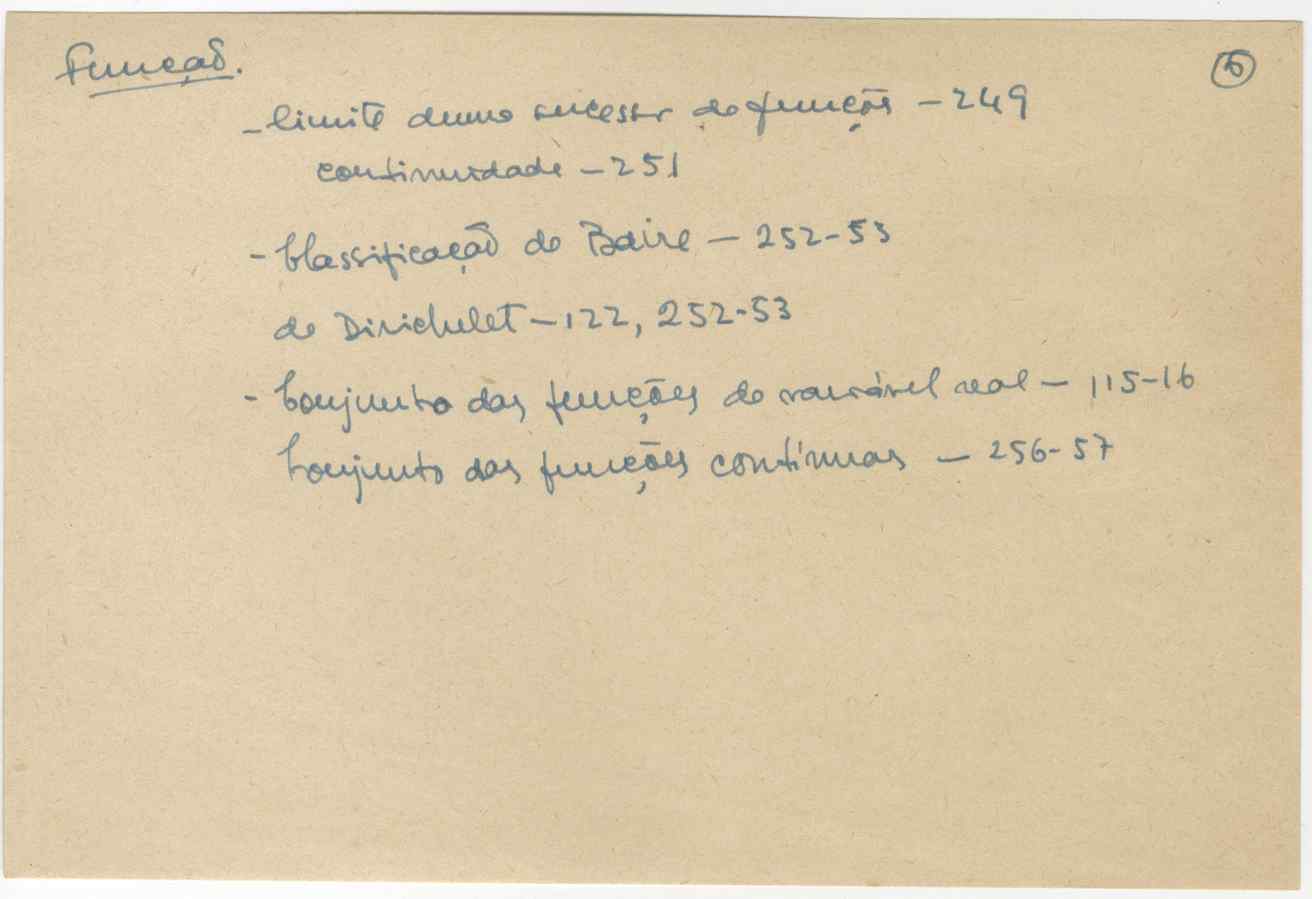 Função. ⑤
- limite duma sucessão de funções - 249
continuidade - 251
- Classificação de Baire - 252-53
de Dirichelet - 122, 252-53
- Conjunto das funções de variável real - 115-16
Conjunto das funções contínuas - 256-57